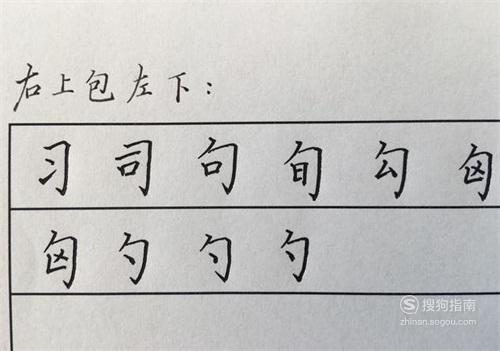 右上包左下：
习 司 句 旬 勾 匈
匈 勺 勺 勺
搜狗指南
zhinan.sogou.com